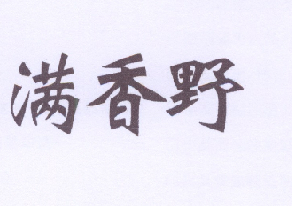 满香野